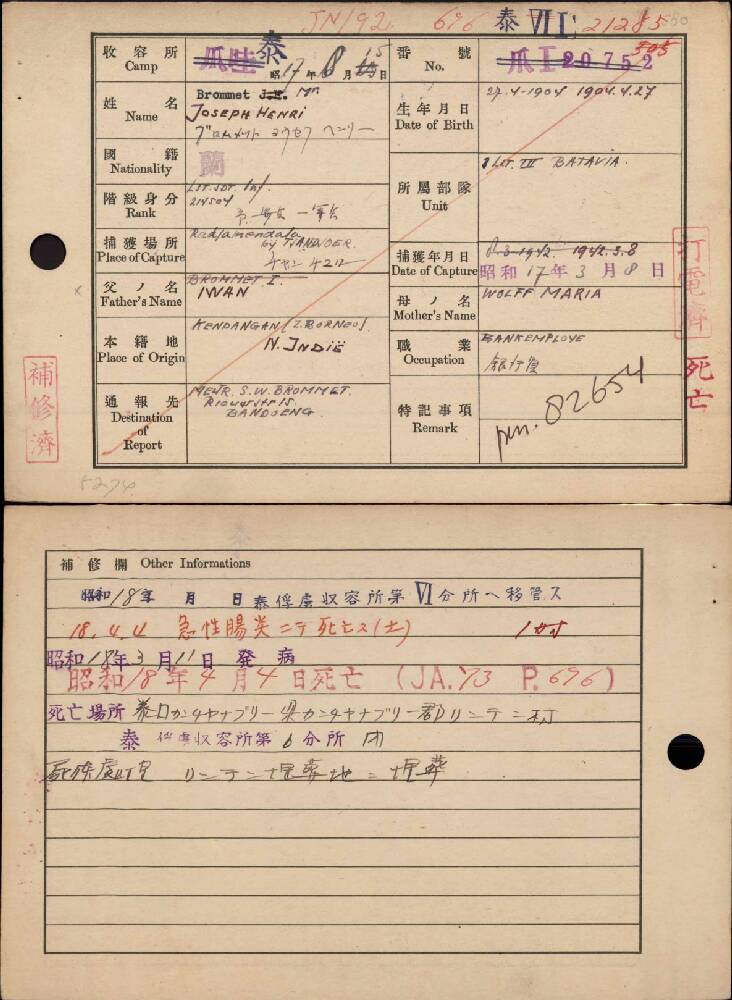 JN192. 696 泰 VI 21285
収容所 Camp 爪哇 泰 昭17年8月15日
番號 No. 爪I 20752 505
姓名 Name Brommet J.H. Mr
JOSEPH HENRI
生年月日 Date of Birth 27.4-1904 1904.4.27
國籍 Nationality 蘭
階級身分 Rank LST.SDT. Inf.
214504
所屬部隊 Unit LST. III BATAVIA.
捕獲場所 Place of Capture Radjamandala by TJIANDJOER.
捕獲年月日 Date of Capture 8.3-1942. 1942.3.8
昭和17年3月8日
父ノ名 Father's Name BROMMET. I.
IWAN
母ノ名 Mother's Name WOLFF MARIA
本籍地 Place of Origin KENDANGAN (Z.BORNEO).
N. INDIË
職業 Occupation BANKEMPLOYE
通報先 Destination of Report MEVR. S.W. BROMMET.
Riouwstr. 15.
BANDOENG
特記事項 Remark pen. 82654
打電濟
死亡
補修濟
5274
補修欄 Other Informations
昭和18年 月 日 泰俘虜収容所第VI分所ヘ移管ス
18.4.4 急性腸炎ニテ死亡ス(土)
昭和18年3月11日 発病
昭和18年4月4日死亡 (JA.73 P.696)
死亡場所 泰国カンチヤナブリー県カンチヤナブリー郡リンテン村
泰俘虜収容所第6分所内
リンテン埋葬地ニ埋葬